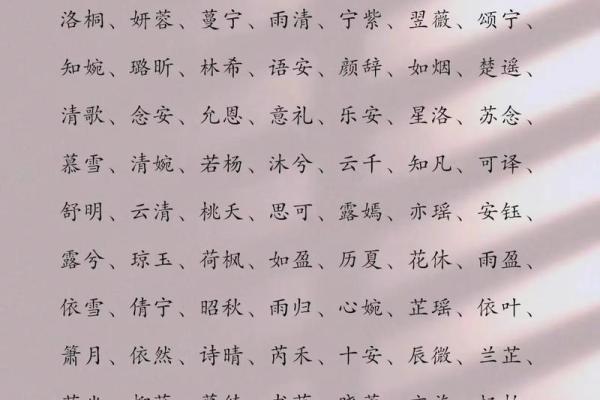 洛桐、妍蓉、蔓宁、雨清、宁紫、翌薇、颂宁、
知婉、璐昕、林希、语安、颜辞、如烟、楚遥、
清歌、念安、允恩、意礼、乐安、星洛、苏念、
慕雪、清婉、若杨、沐兮、云千、知凡、可译、
舒明、云清、桃夭、思可、露嫣、亦瑶、安钰、
露兮、琼玉、荷枫、如盈、历夏、花休、雨盈、
依雪、倩宁、昭秋、雨归、心婉、芷瑶、依叶、
箫月、依然、诗晴、芮禾、十安、辰微、兰芷、